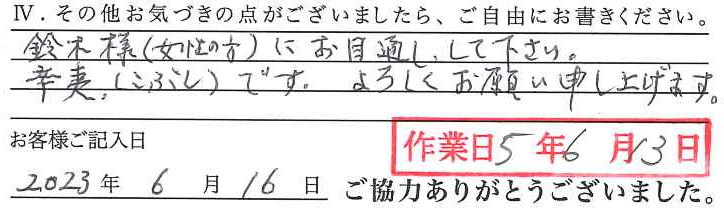 Ⅳ．その他お気づきの点がございましたら、ご自由にお書きください。
鈴木様(女性の方)にお目通し、して下さい。
辛夷、(こぶし)です。よろしくお願い申し上げます。
お客様ご記入日
作業日5年6月13日
2023年6月16日 ご協力ありがとうございました。